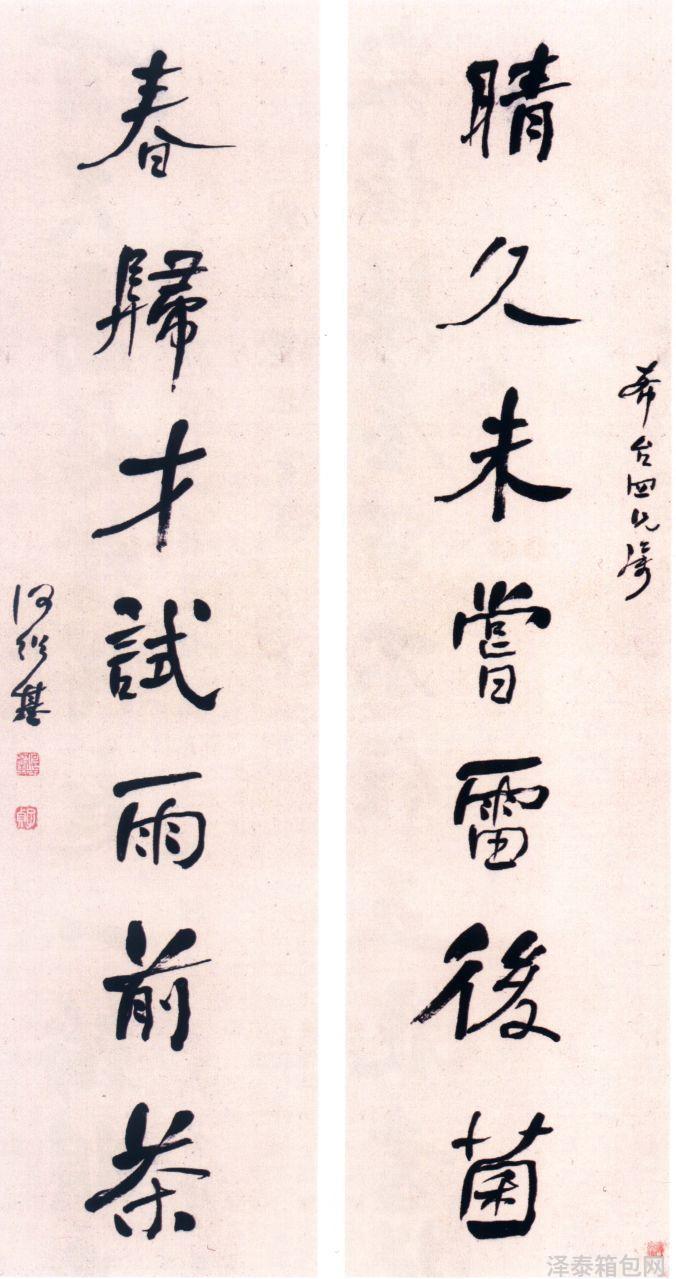 晴久未嘗雷後菌
春歸才試雨前茶
何紹基
泽泰箱包网